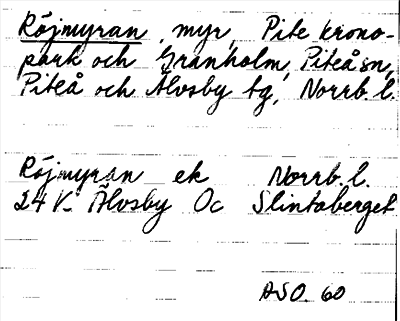 Röjmyran, myr, Pite krono-
park och Granholm, Piteå sn,
Piteå och Älvsby tg, Norrb. l.
Röjmyran ek Norrb. l.
24 K Älvsby Oc Slintaberget
ASO 60